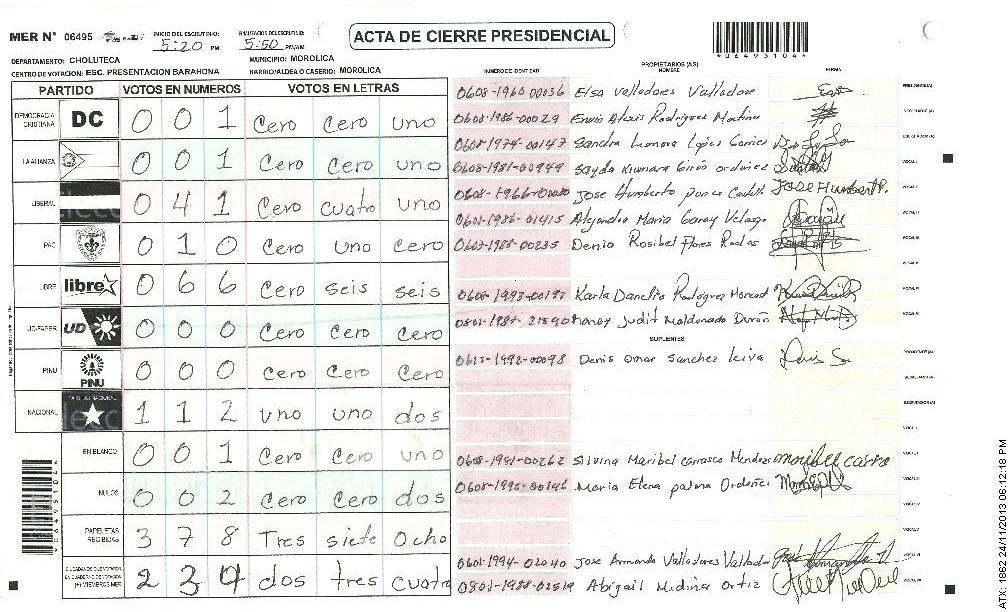 MER N° 06495 INICIO DEL ESCRUTINIO: 5:20 PM FINALIZACION DEL ESCRUTINIO: 5:50 PM/AM
ACTA DE CIERRE PRESIDENCIAL
06495104
DEPARTAMENTO: CHOLUTECA MUNICIPIO: MOROLICA
CENTRO DE VOTACION: ESC. PRESENTACION BARAHONA BARRIO/ALDEA O CASERIO: MOROLICA
PARTIDO VOTOS EN NUMEROS VOTOS EN LETRAS
DEMOCRACIA CRISTIANA DC 0 0 1 Cero Cero uno
LA ALIANZA 0 0 1 Cero Cero uno
LIBERAL 0 4 1 Cero cuatro uno
PAC 0 1 0 Cero uno Cero
LIBRE libre 0 6 6 Cero seis seis
UD-FAPER UD 0 0 0 Cero Cero Cero
PINU PINU 0 0 0 Cero Cero Cero
NACIONAL 1 1 2 uno uno dos
EN BLANCO 0 0 1 Cero Cero uno
NULOS 0 0 2 Cero Cero dos
PAPELETAS RECIBIDAS 3 7 8 Tres siete Ocho
CIUDADANOS QUE VOTARON EN CUADERNO DE VOTACION (+) MIEMBROS MER 2 3 4 dos tres cuatro
PROPIETARIOS (AS)
NUMERO DE IDENTIDAD NOMBRE FIRMA
0608-1960-00036 Elsa Valladares Valladares
0608-1986-00029 Erwin Alexis Rodriguez
0608-1974-00147 Sandra Leonora López
0608-1981-00949 Sayda Xiomara Girón ordoñez
0608-1966- Jose Humberto Ponce Jose Humberto P.
0601-1986-01415 Alejandra Maria Garay
0607-1988-00235 Denia Rosibel Flores Rodas
Karla Danelia Rodriguez
0801-1984-21840 Nancy Judit Maldonado Durón
SUPLENTES
0615-1992-00098 Denis Omar Sanchez Leiva
0608-1991-00262 Silvina Maribel Carrasco Mendez maribel carra
0608-1995-00146 Maria Elena palma Ordoñez
0601-1994-02040 Jose Armando Valladares
0801-1988-02519 Abigail Medina Ortiz
ATX: 1662 24/11/2013 06:12:18 PM